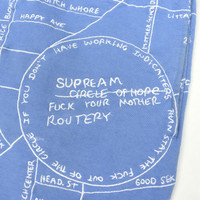 BITCH WHORE
HAPPY AVE
IF YOU DON'T HAVE WORKING INDICAITERS THAN STAY THE FUCK OUT OF THE CIRCLE
SUPREAM
CIRCLE OF HOPE
FUCK YOUR MOTHER
ROUTERY
CENTER
HEAD. ST
GOOD SEX